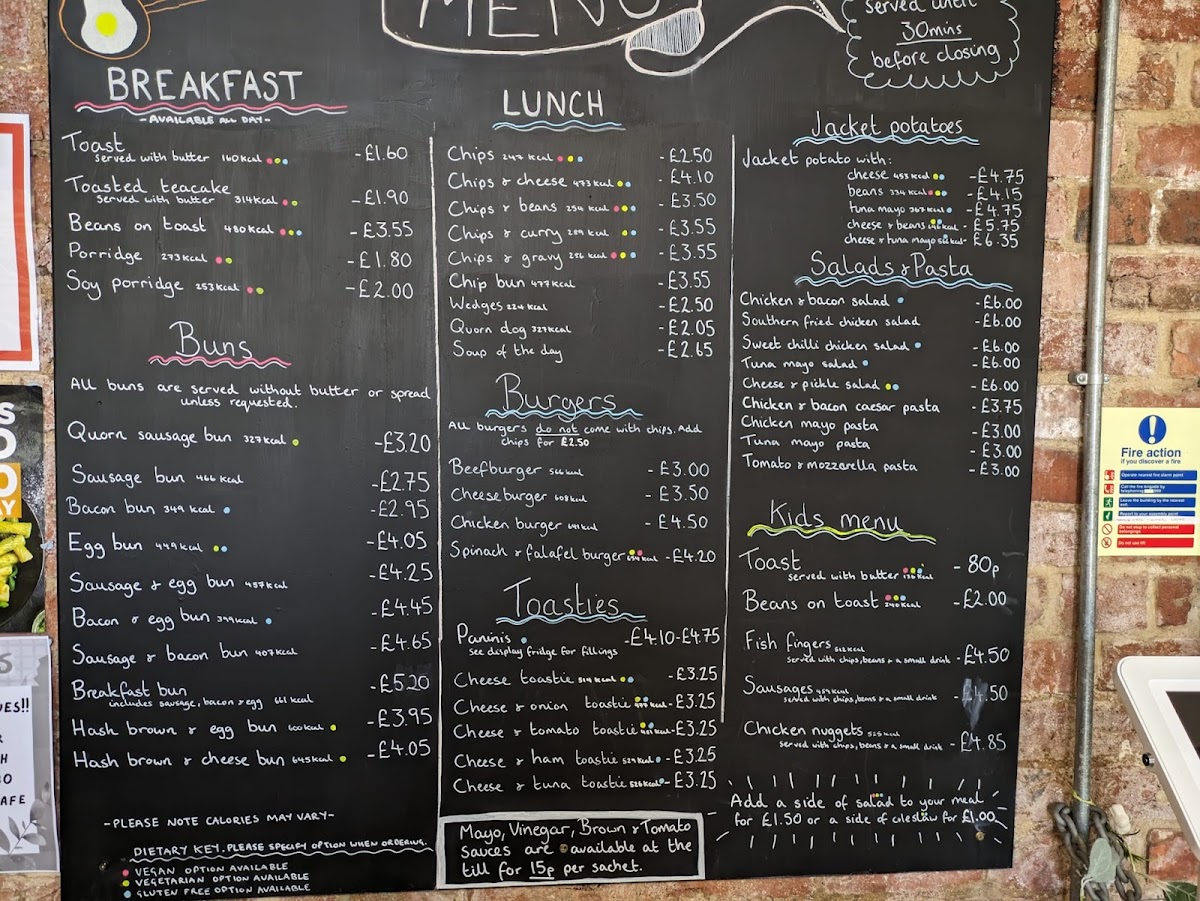 MENU
served until
30mins
before closing
BREAKFAST
-AVAILABLE ALL DAY-
Toast
served with butter 160kcal -£1.60
Toasted teacake
served with butter 314kcal -£1.90
Beans on toast 480kcal -£3.55
Porridge 273kcal -£1.80
Soy porridge 253kcal -£2.00
Buns
All buns are served without butter or spread
unless requested.
Quorn sausage bun 327kcal -£3.20
Sausage bun 466kcal -£2.75
Bacon bun 349kcal -£2.95
Egg bun 449kcal -£4.05
Sausage & egg bun 457kcal -£4.25
Bacon & egg bun 399kcal -£4.45
Sausage & bacon bun 407kcal -£4.65
Breakfast bun -£5.20
includes sausage, bacon & egg 661kcal
Hash brown & egg bun 600kcal -£3.95
Hash brown & cheese bun 645kcal -£4.05
-PLEASE NOTE CALORIES MAY VARY-
DIETARY KEY. PLEASE SPECIFY OPTION WHEN ORDERING.
VEGAN OPTION AVAILABLE
VEGETARIAN OPTION AVAILABLE
GLUTEN FREE OPTION AVAILABLE
LUNCH
Chips 247kcal -£2.50
Chips & cheese 473kcal -£4.10
Chips & beans 254kcal -£3.50
Chips & curry 289kcal -£3.55
Chips & gravy 256kcal -£3.55
Chip bun 477kcal -£3.55
Wedges 224kcal -£2.50
Quorn dog 327kcal -£2.05
Soup of the day -£2.65
Burgers
All burgers do not come with chips. Add
chips for £2.50
Beefburger kcal -£3.00
Cheeseburger 608kcal -£3.50
Chicken burger kcal -£4.50
Spinach & falafel burger kcal -£4.20
Toasties
Paninis -£4.10-£4.75
see display fridge for fillings
Cheese toastie kcal -£3.25
Cheese & onion toastie kcal -£3.25
Cheese & tomato toastie kcal -£3.25
Cheese & ham toastie 529kcal -£3.25
Cheese & tuna toastie 526kcal -£3.25
Mayo, Vinegar, Brown & Tomato
Sauces are available at the
till for 15p per sachet.
Jacket potatoes
Jacket potato with:
cheese 453kcal -£4.75
beans 234kcal -£4.15
tuna mayo 367kcal -£4.75
cheese & beans kcal -£5.75
cheese & tuna mayo kcal -£6.35
Salads & Pasta
Chicken & bacon salad -£6.00
Southern fried chicken salad -£6.00
Sweet chilli chicken salad -£6.00
Tuna mayo salad -£6.00
Cheese & pickle salad -£6.00
Chicken & bacon caesar pasta -£3.75
Chicken mayo pasta -£3.00
Tuna mayo pasta -£3.00
Tomato & mozzarella pasta -£3.00
Kids menu
Toast
served with butter kcal -80p
Beans on toast 240kcal -£2.00
Fish fingers 512kcal
served with chips, beans & a small drink -£4.50
Sausages kcal
served with chips, beans & a small drink -£4.50
Chicken nuggets 525kcal
served with chips, beans & a small drink -£4.85
Add a side of salad to your meal
for £1.50 or a side of coleslaw for £1.00
Fire action
if you discover a fire
Operate nearest fire alarm point
Call the fire brigade by
telephoning
Leave the building by the nearest
exit
Report to your assembly point
Do not stop to collect personal
belongings
Do not use lift